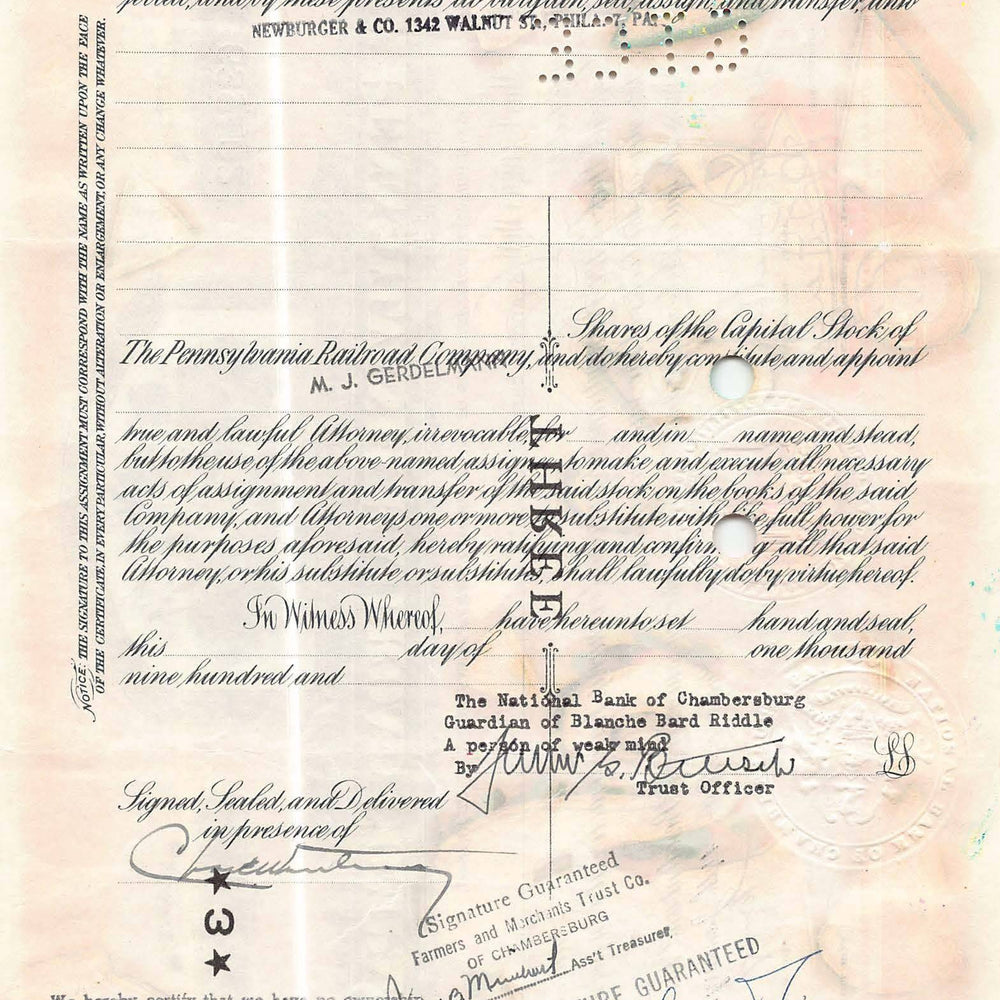 NOTICE: THE SIGNATURE TO THIS ASSIGNMENT MUST CORRESPOND WITH THE NAME AS WRITTEN UPON THE FACE
OF THE CERTIFICATE, IN EVERY PARTICULAR, WITHOUT ALTERATION OR ENLARGEMENT, OR ANY CHANGE WHATEVER.
and by these presents do bargain, sell, assign, and transfer, unto
NEWBURGER & CO. 1342 WALNUT ST., PHILA. 7, PA.
Shares of the Capital Stock of
The Pennsylvania Railroad Company, and do hereby constitute and appoint
M. J. GERDELMANN
true and lawful Attorney, irrevocable, for and in name and stead,
but to the use of the above-named assignee to make and execute all necessary
acts of assignment and transfer of the said stock on the books of the said
Company, and Attorneys one or more to substitute with like full power for
the purposes aforesaid, hereby ratifying and confirming all that said
Attorney, or his substitute or substitutes, shall lawfully do by virtue hereof.
THREE
In Witness Whereof, have hereunto set hand and seal,
this day of one thousand
nine hundred and
The National Bank of Chambersburg
Guardian of Blanche Bard Riddle
A person of weak mind
By
LS
Trust Officer
Signed, Sealed, and Delivered
in presence of
★ 3 ★
Signature Guaranteed
Farmers and Merchants Trust Co.
OF CHAMBERSBURG
Ass't Treasurer
GUARANTEED
We hereby certify that we have no ownership